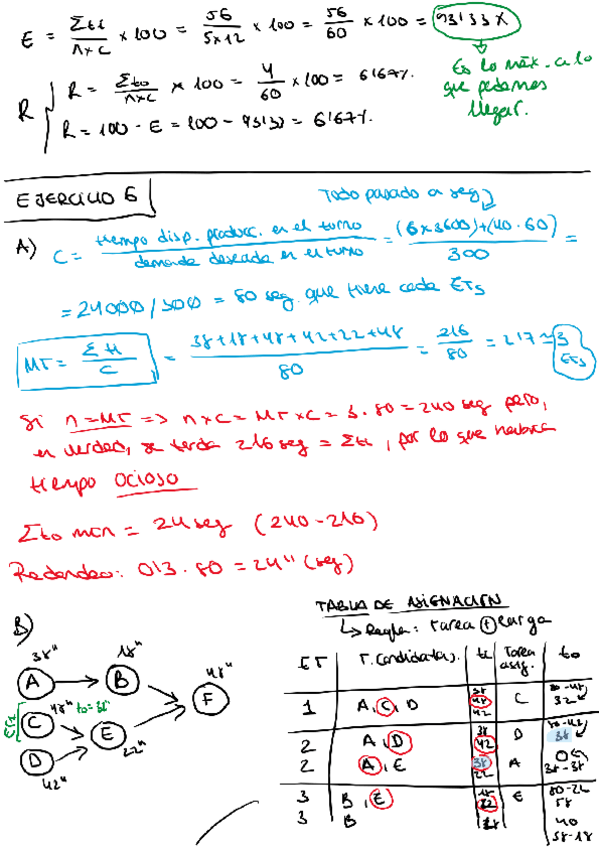 E = Σti / n×c × 100 = 56 / 5×12 × 100 = 56 / 60 × 100 = 93'33%
Es lo máx. a lo
que podemos
llegar.
R { R = Σto / n×c × 100 = 4 / 60 × 100 = 6'67%
R = 100 - E = 100 - 93'33 = 6'67%.
EJERCICIO 6
Todo pasado a seg
A) C = tiempo disp. producc. en el turno / demanda deseada en el turno = (6×3600)+(40·60) / 300 =
= 24000 / 300 = 80 seg. que tiene cada ETs
MT = Σti / C = 38+18+48+42+22+48 / 80 = 216 / 80 = 2'7 ≈ 3 ETs
Si n = MT => n×c = MT×c = 3·80 = 240 seg pero,
en verdad, se tarda 216 seg = Σti, por lo que habrá
tiempo ocioso
Σto min = 24 seg (240-216)
Redondeo: 0'3·80 = 24" (seg)
B)
TABLA DE ASIGNACIÓN
↳ Regla: Tarea + larga
38" 18" 48"
A B F
ET1 C 48" to=32"
E 22"
D 42"
ET T. Candidatas. ti Tarea asig. to
1 A, C, D 38 48 42 C 80-48 32
2 A, D 38 42 D 80-42 38
2 A, E 38 22 A 0 38-38
3 B, E 18 22 E 80-22 58
3 B 18 40 58-18